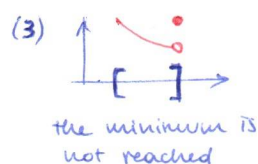 (3)
the minimum is
not reached